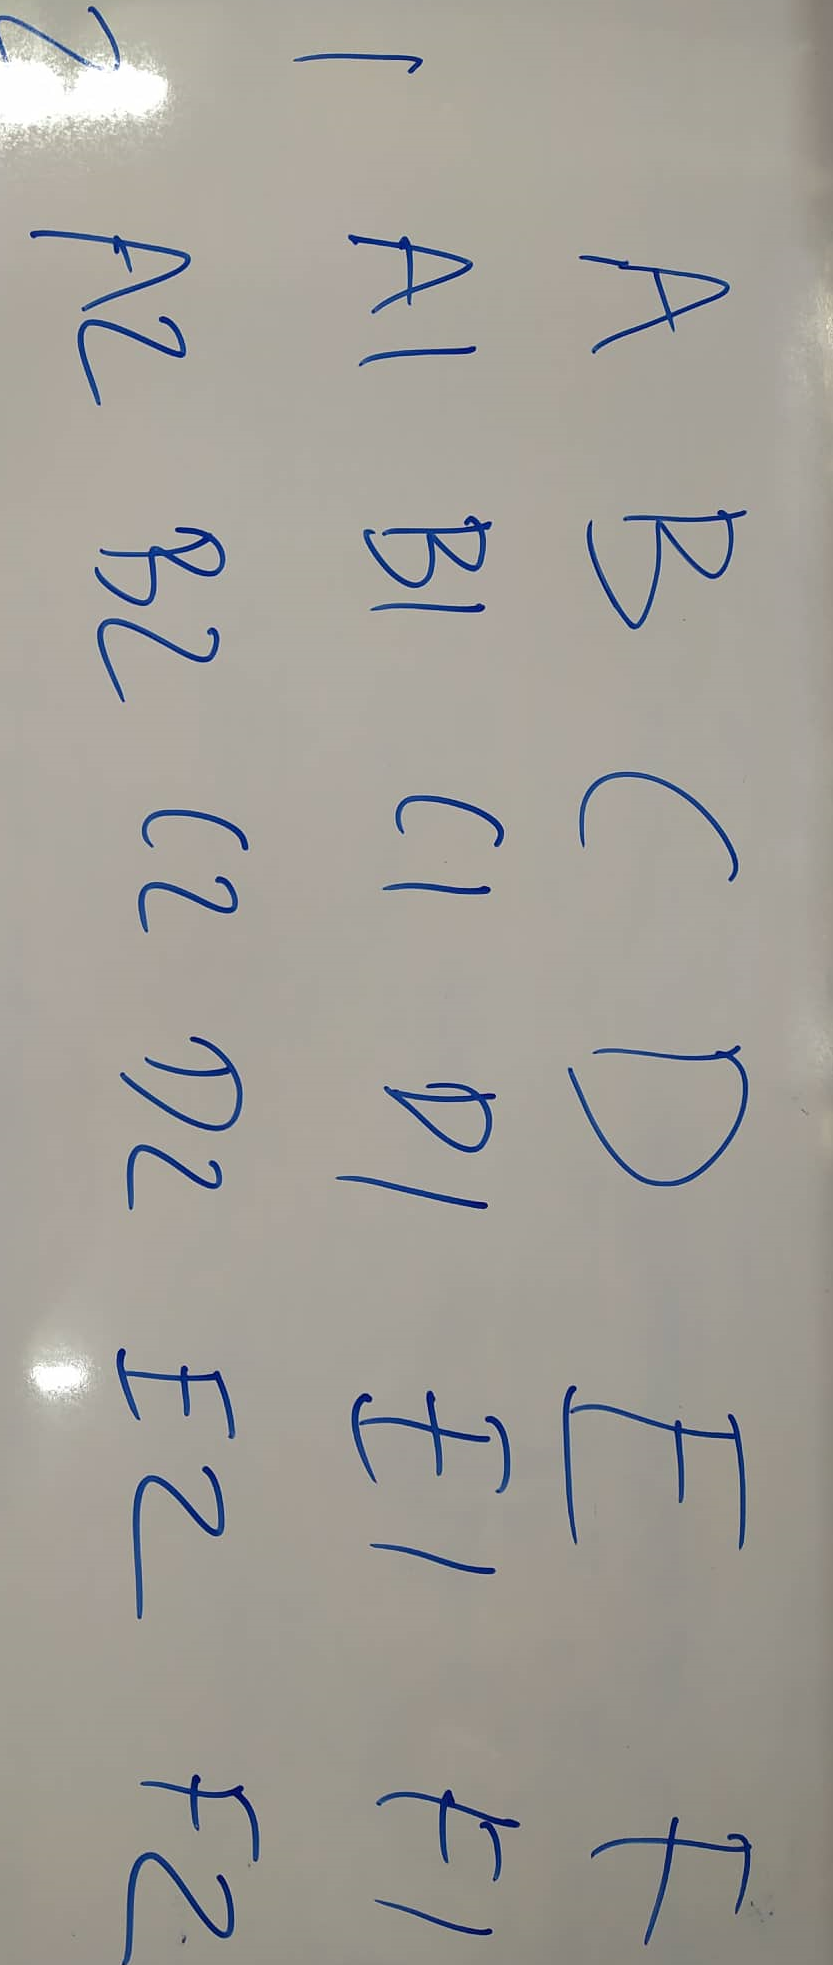 A B C D E F
1 A1 B1 C1 D1 E1 F1
2 A2 B2 C2 D2 E2 F2